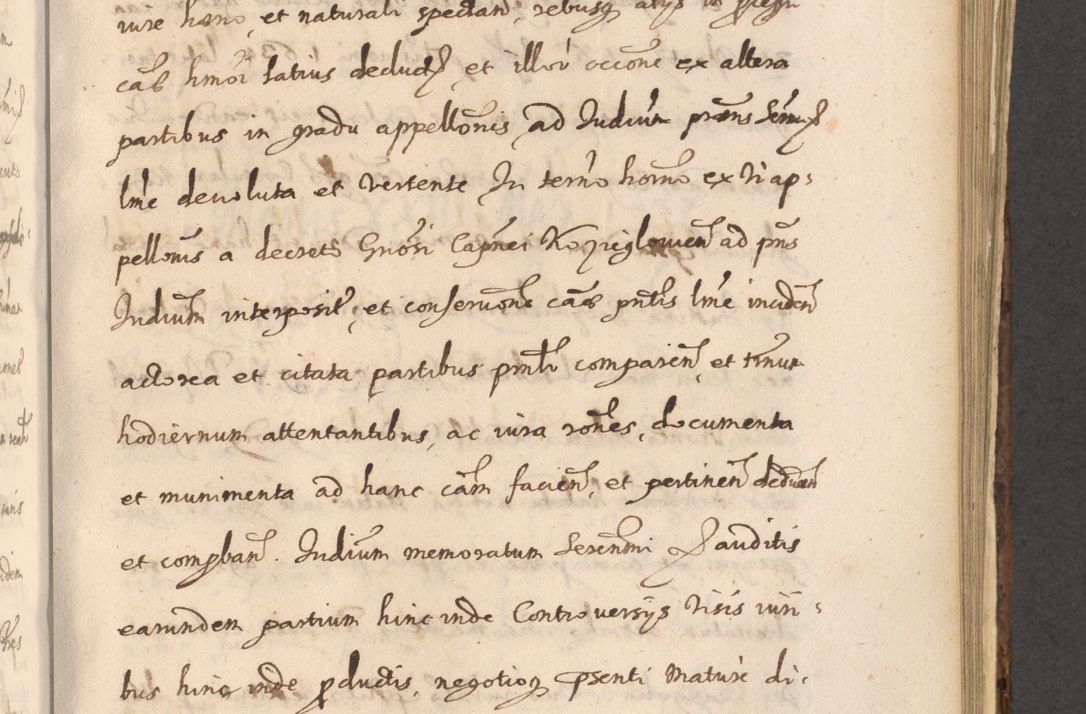 iure haeno, et naturali spectan, rebusq alys in
caus hmoi latius deduct, et illor occone ex altera
partibus in gradu appellonis, ad Iudium prans
lme devoluta et vertente In termo horno ex vi ap:
pellonis a decreto Gnosi Capnei Kozieglowien ad pns
Iudium interposit, et conservone caus pntis lme inciden
actorea et citata partibus pntbr comparien, et tmnum
hodiernum attentantibus, ac iura rones, documenta
et munimenta ad hanc cam facien, et pertinen deducen
et compban. Iudium memoratum Serenmi auditis
earundem partium hinc inde Controversijs visis iuri:
bus hinc inde pductis, negotioq psenti Mature di: